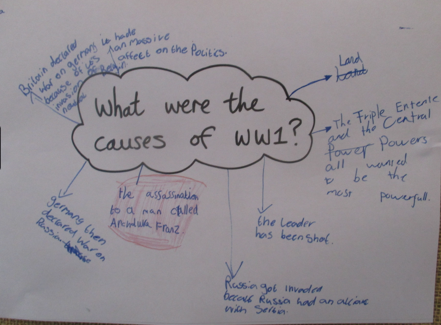 Britain declared
war on germany
because of
invasion of
had a massive
affect on the Politics.
Land
What were the
causes of WW1?
The Triple Entente
and the Central
Power Powers
all wanted
to be the
most powerfull.
germany then
declared war on
Russia
the assassination
to a man called
Archduka Franz
the Leader
has been shot.
Russia got invaded
Russia had an
with Serbia.